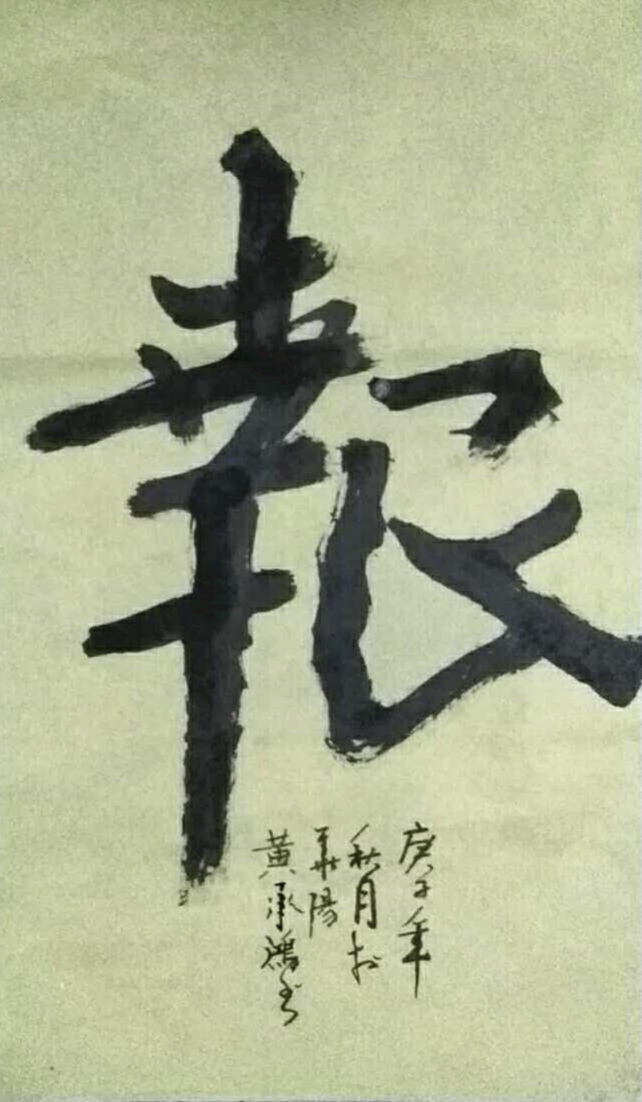 報
庚子年
秋月於
華陽
黃承鴻书